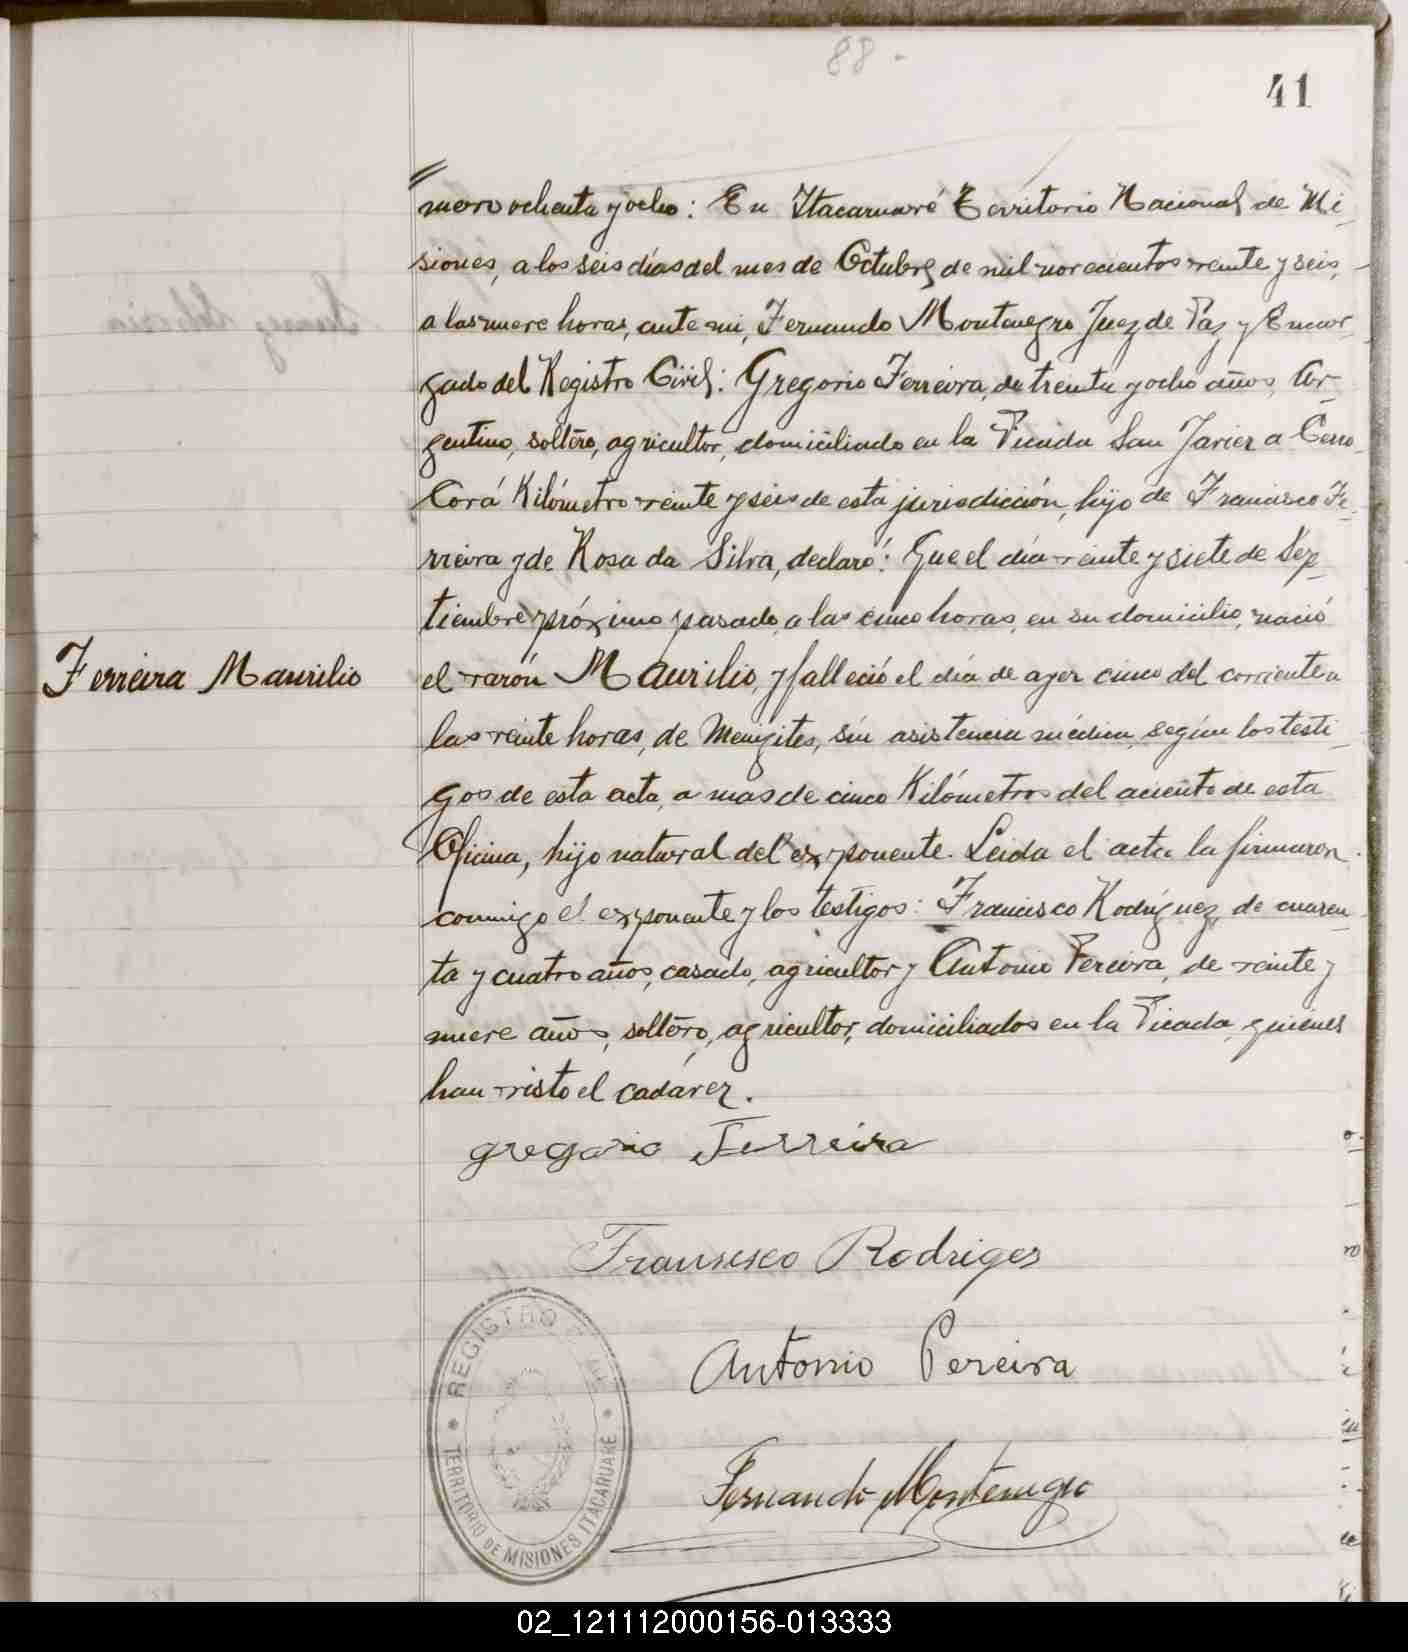 88.
41
mero ochenta y ocho: En Itacaruaré Territorio Nacional de Mi-
siones, a los seis días del mes de Octubre de mil novecientos veinte y seis,
a las nueve horas, ante mi, Fernando Montenegro Juez de Paz y Encar-
gado del Registro Civil: Gregorio Ferreira, de treinta y ocho años, Ar-
gentino, soltero, agricultor, domiciliado en la Picada San Javier a Cerro
Corá Kilómetro veinte y seis de esta jurisdicción, hijo de Francisco Fe-
rreira y de Rosa da Silva, declaró: Que el día veinte y siete de Sep-
tiembre próximo pasado, a las cinco horas, en su domicilio, nació
Ferreira Maurilio
el varón Maurilio, y falleció el día de ayer cinco del corriente a
las veinte horas, de Menigites, sin asistencia médica, según los testi-
gos de esta acta, a mas de cinco Kilómetros del aciento de esta
Oficina, hijo natural del exponente. Leida el acta la firmaron
conmigo el exponente y los testigos: Francisco Rodríguez, de cuaren-
ta y cuatro años, casado, agricultor y Antonio Pereira, de veinte y
nueve años, soltero, agricultor, domiciliados en la Picada, quienes
han visto el cadáver.
gregorio Ferreira
Fransisco Rodriges
Antonio Pereira
Fernando Montenegro
REGISTRO CIVIL
TERRITORIO DE MISIONES ITACARUARE
02_121112000156-013333